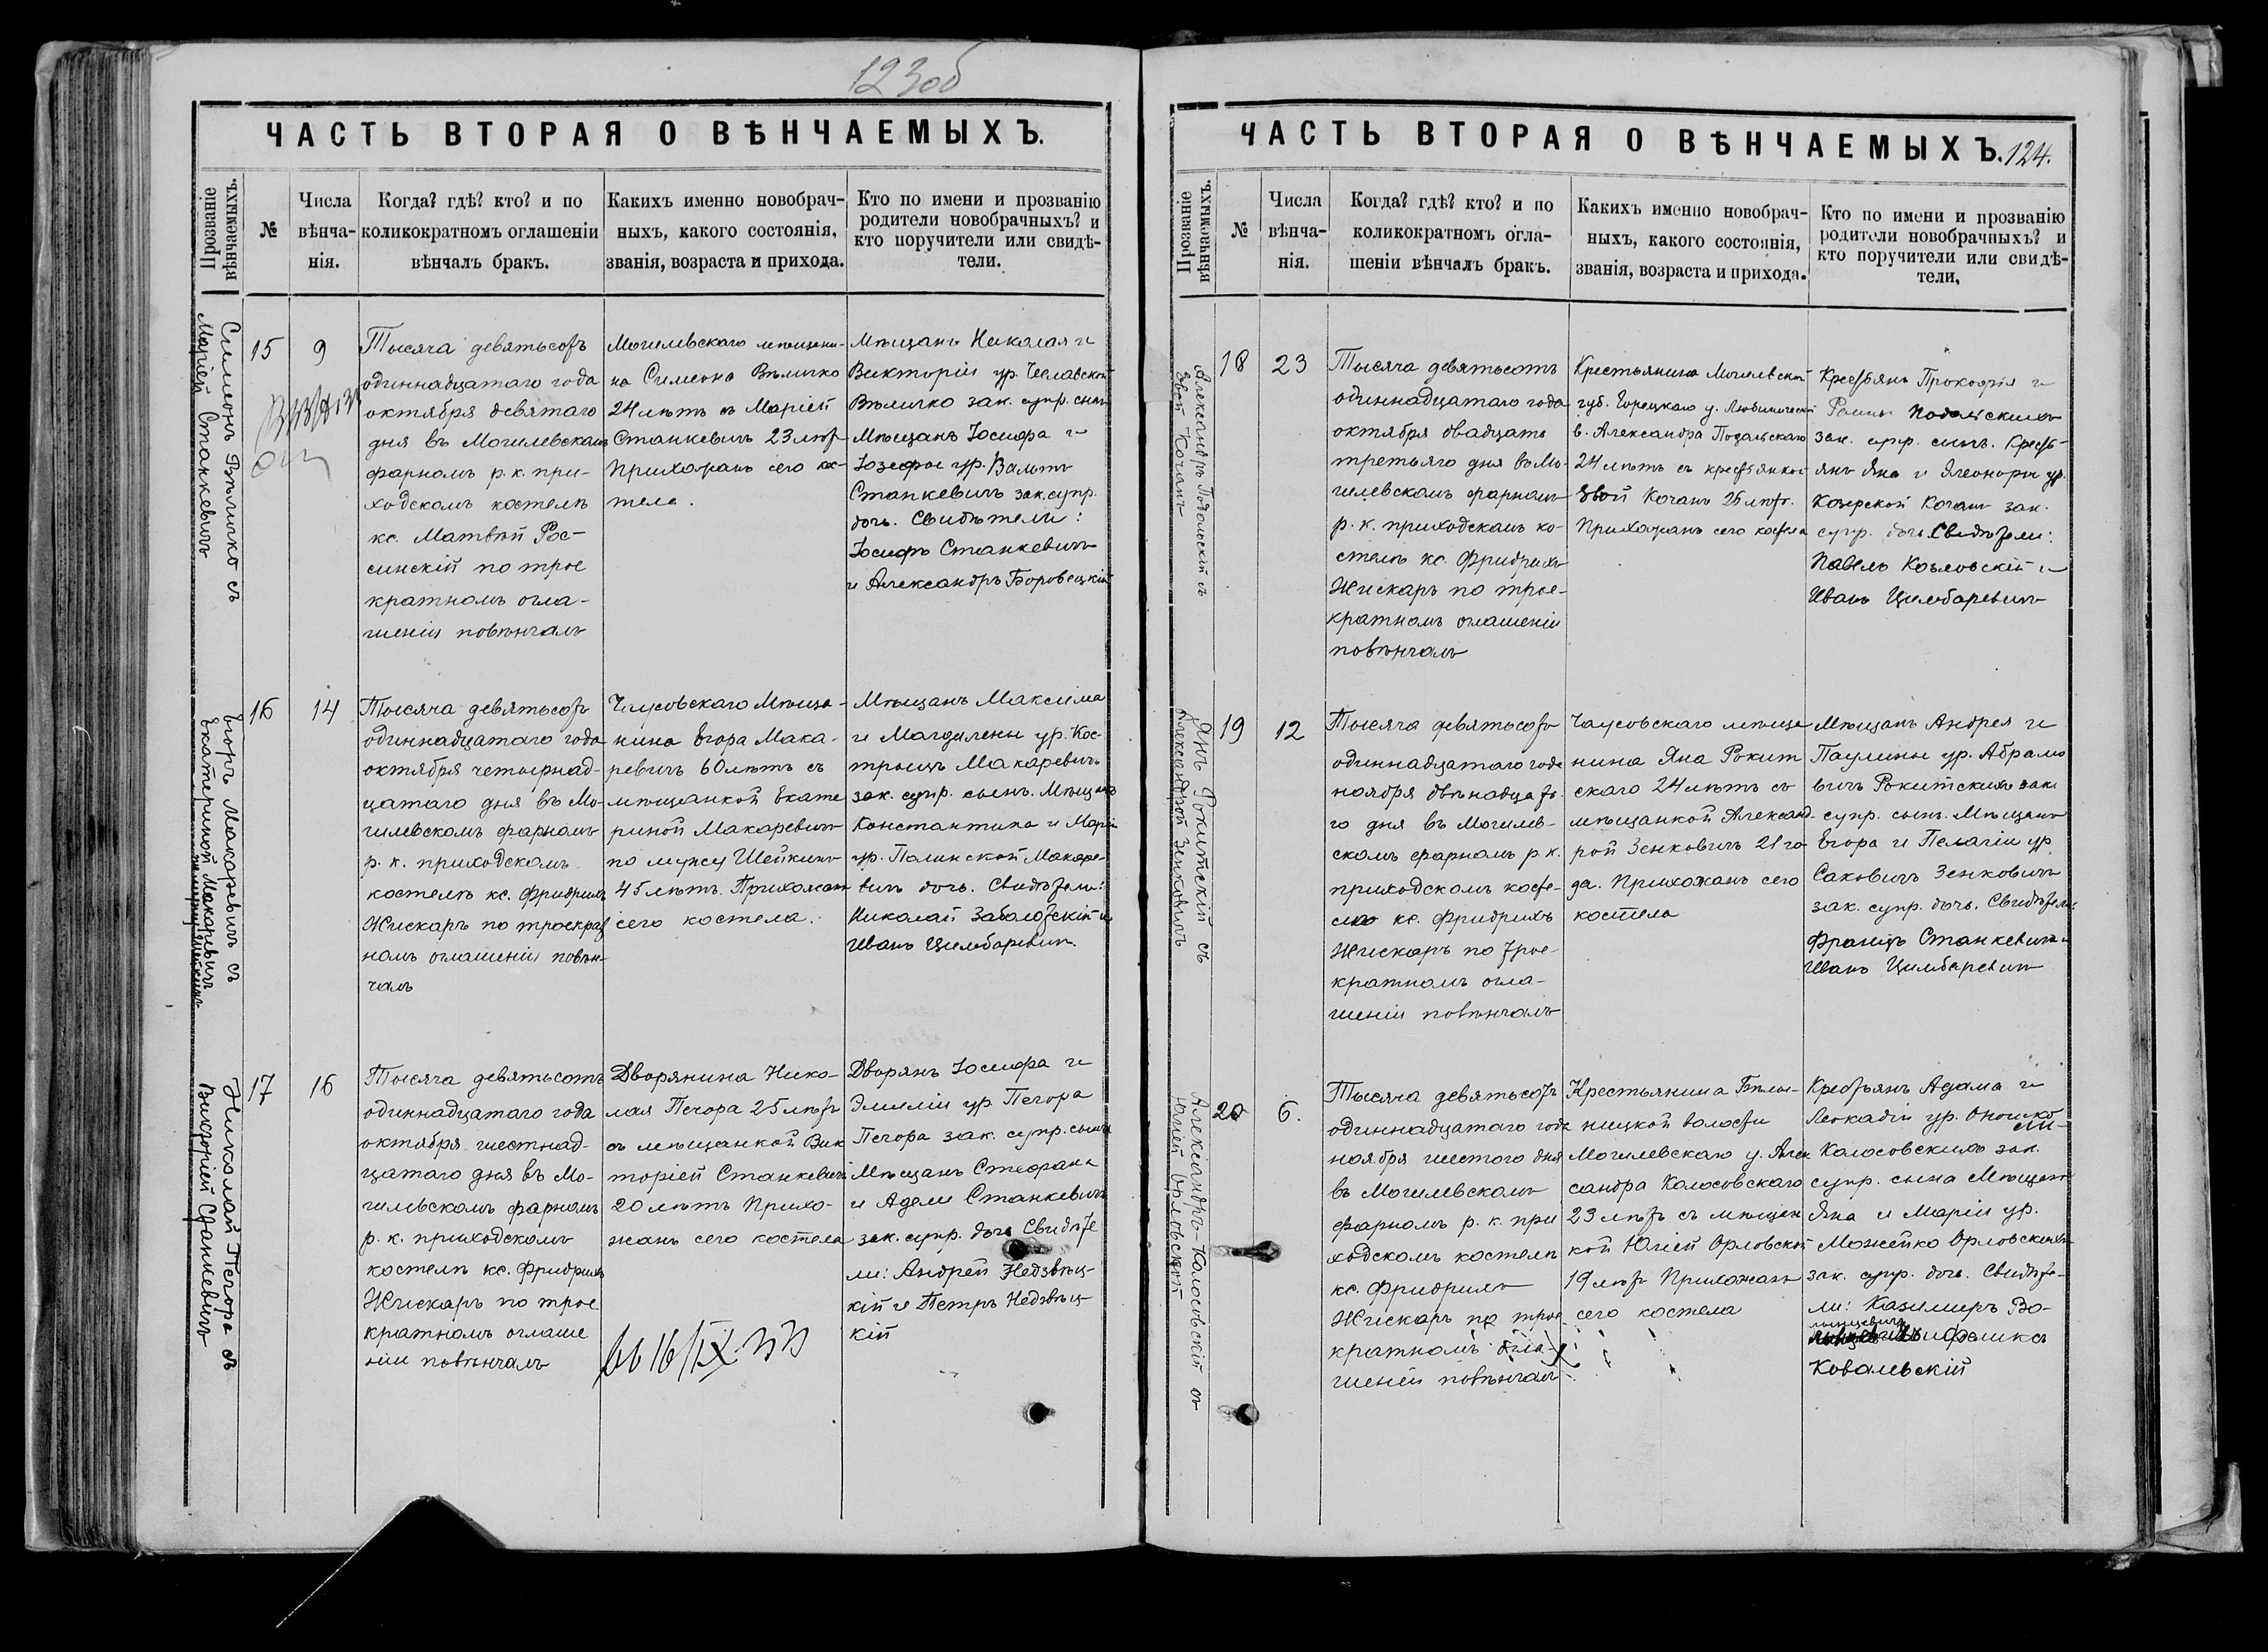 123 об
ЧАСТЬ ВТОРАЯ О ВѢНЧАЕМЫХЪ.
Прозваніе
вѣнчаемыхъ.
№
Числа
вѣнча-
нія.
Когда? гдѣ? кто? и по
коликократномъ оглашеніи
вѣнчалъ бракъ.
Какихъ именно новобрач-
ныхъ, какого состоянія,
званія, возраста и прихода.
Кто по имени и прозванію
родители новобрачныхъ? и
кто поручители или свидѣ-
тели.
Симеонъ Вѣличко съ
Маріей Станкевичъ
15
9
Тысяча девятьсотъ
одиннадцатаго года
октября девятаго
дня въ Могилевскомъ
фарномъ р. к. при-
ходскомъ костелѣ
кс. Матвѣй Рос-
синскій по трое
кратномъ огла-
шеніи повѣнчалъ
Могилевскаго мѣщани-
на Симеона Вѣличко
24 лѣтъ съ Маріей
Станкевичъ 23 лѣтъ
Прихожанъ сего кос-
тела.
Мѣщанъ Николая и
Викторіи ур.
Вѣличко зак. супр. сынъ
Мѣщанъ Іосифа и
Іозефы ур.
Станкевичъ зак. супр.
дочь. Свидѣтели:
Іосифъ Станкевичъ
и Александръ Боровецкій
Егоръ Макаревичъ съ
Екатериной Макаревичъ
по мужу Шейкинъ
16
14
Тысяча девятьсотъ
одиннадцатаго года
октября четырнад-
цатаго дня въ Мо-
гилевскомъ фарномъ
р. к. приходскомъ
костелѣ кс. Фридрихъ
Жискаръ по троекрат
номъ оглашеніи повѣн-
чалъ
Чаусовскаго Мѣща-
нина Егора Мака-
ревичъ 60 лѣтъ съ
мѣщанкой Екате
риной Макаревичъ
по мужу Шейкинъ
45 лѣтъ. Прихожанъ
сего костела.
Мѣщанъ Максима
и Магдалены ур. Кос-
троицъ Макаревичъ
зак. супр. сынъ. Мѣщанъ
Константина и Маріи
ур. Палинской Макаре-
вичъ дочь. Свидѣтели:
Николай Заболотскій и
Иванъ Цимбаревичъ.
Николай Печора съ
Викторіей Станкевичъ
17
16
Тысяча девятьсотъ
одиннадцатаго года
октября шестнад-
цатаго дня въ Мо-
гилевскомъ фарномъ
р. к. приходскомъ
костелѣ кс. Фридрихъ
Жискаръ по трое
кратномъ оглаше
ніи повѣнчалъ
Дворянина Нико-
лая Печора 25 лѣтъ
съ мѣщанкой Вик
торіей Станкевичъ
20 лѣтъ Прихо-
жанъ сего костела
Дворянъ Іосифа и
Эмиліи ур. Печора
Печора зак. супр. сынъ
Мѣщанъ Стефана
и Адели Станкевичъ
зак. супр. дочь Свидѣте
ли: Андрей Недзвѣц-
кій и Петръ Недзвѣц-
кій
ЧАСТЬ ВТОРАЯ О ВѢНЧАЕМЫХЪ.
124.
Прозваніе
вѣнчаемыхъ.
№
Числа
вѣнча-
нія.
Когда? гдѣ? кто? и по
коликократномъ огла-
шеніи вѣнчалъ бракъ.
Какихъ именно новобрач-
ныхъ, какого состоянія,
званія, возраста и прихода.
Кто по имени и прозванію
родители новобрачныхъ? и
кто поручители или свидѣ-
тели,
Александръ Подольскій съ
Евой Кочанъ
18
23
Тысяча девятьсотъ
одиннадцатаго года
октября двадцать
третьяго дня въ Мо-
гилевскомъ фарномъ
р. к. приходскомъ ко-
стелѣ кс. Фридрихъ
Жискаръ по трое-
кратномъ оглашеніи
повѣнчалъ
Крестьянина Могилевской
губ. Горецкаго у.
в. Александра Подольскаго
24 лѣтъ съ крестьянкой
Евой Кочанъ 25 лѣтъ.
Прихожанъ сего костела
Крестьянъ Прокофія и
Подольскихъ
зак. супр. сынъ. Кресть-
янъ Яна и Элеоноры ур.
Козерской Кочанъ зак.
супр. дочь. Свидѣтели:
Павелъ Козловскій и
Иванъ Цимбаревичъ
Янъ Рокитскій съ
Александрой Зенковичъ
19
12
Тысяча девятьсотъ
одиннадцатаго года
ноября двѣнадцата-
го дня въ Могилев-
скомъ фарномъ р. к.
приходскомъ косте-
лѣ кс. Фридрихъ
Жискаръ по трое-
кратномъ огла-
шеніи повѣнчалъ
Чаусовскаго мѣща
нина Яна Рокит
скаго 24 лѣтъ съ
мѣщанкой Александ-
рой Зенковичъ 21 го
да. Прихожанъ сего
костела
Мѣщанъ Андрея и
Паулины ур. Абрамо
вичъ Рокитскихъ зак.
супр. сынъ. Мѣщанъ
Егора и Пелагіи ур
Саковичъ Зенковичъ
зак. супр. дочь. Свидѣтели:
Францъ Станкевичъ и
Иванъ Цимбаревичъ
Александръ Колосовскій съ
Юліей Орловской
20
6.
Тысяча девятьсотъ
одиннадцатаго года
ноября шестого дня
въ Могилевскомъ
фарномъ р. к. при
ходскомъ костелѣ
кс. Фридрихъ
Жискаръ по трое
кратномъ огла-
шеніи повѣнчалъ
Крестьянина Бѣлы-
ницкой волости
Могилевскаго у. Алек
сандра Колосовскаго
23 лѣтъ съ мѣщан
кой Юліей Орловской
19 лѣтъ Прихожанъ
сего костела
Крестьянъ Адама и
Леокадіи ур.
Колосовскихъ зак.
супр. сына Мѣщанъ
Яна и Маріи ур.
Можейко Орловскихъ
зак. супр. дочь. Свидѣте-
ли: Казимиръ
и Феликсъ
Ковальскій